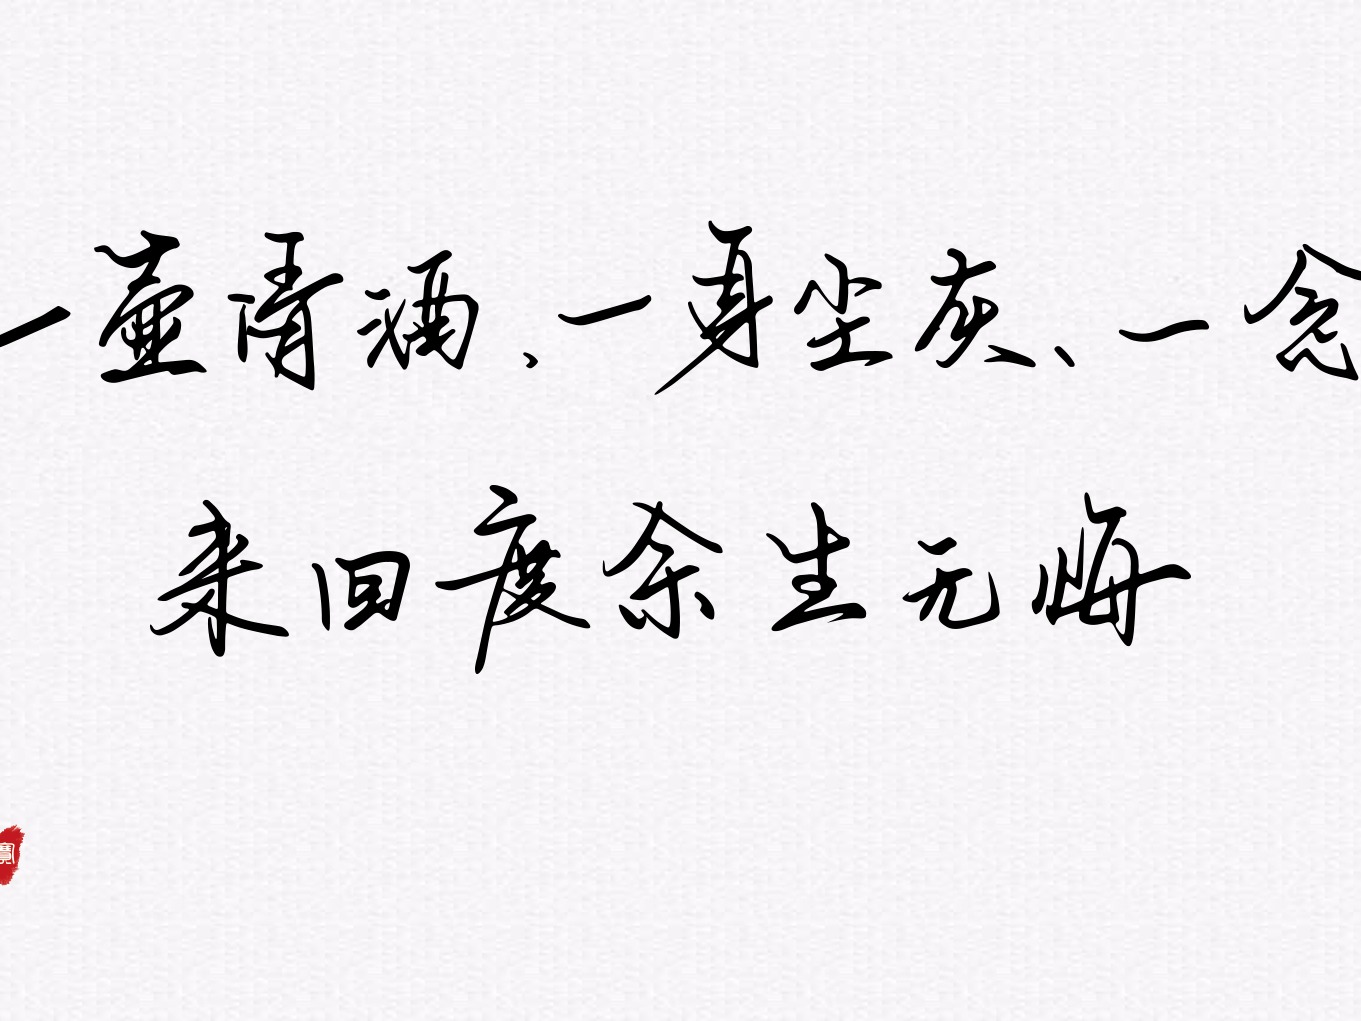 一壶清酒、一身尘灰、一念
来回度余生无悔